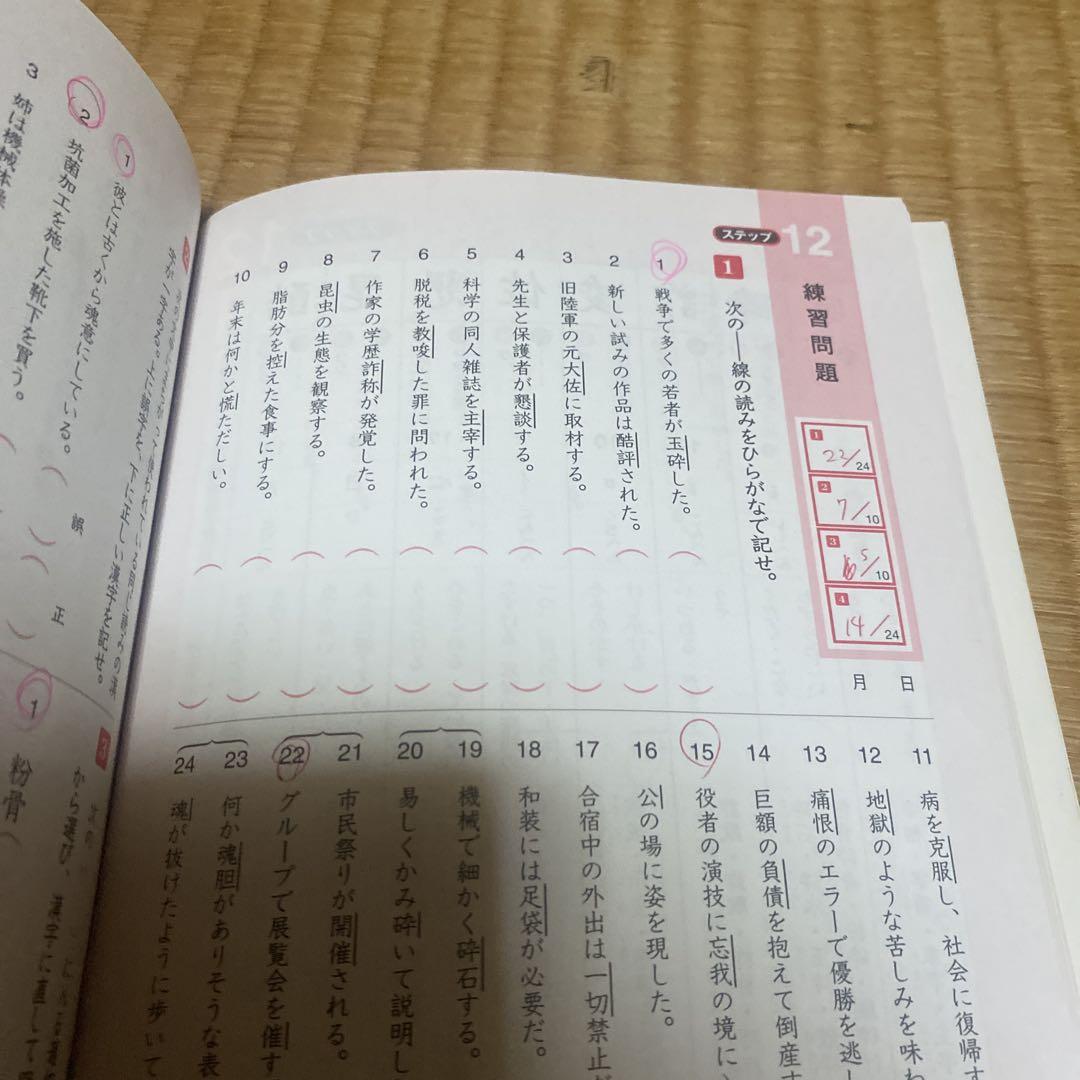 ステップ 12 練習問題
1 22/24
2 7/10
3 5/10
4 14/24
月 日
1 次の──線の読みをひらがなで記せ。
1 戦争で多くの若者が玉砕した。
2 新しい試みの作品は酷評された。
3 旧陸軍の元大佐に取材する。
4 先生と保護者が懇談する。
5 科学の同人雑誌を主宰する。
6 脱税を教唆した罪に問われた。
7 作家の学歴詐称が発覚した。
8 昆虫の生態を観察する。
9 脂肪分を控えた食事にする。
10 年末は何かと慌ただしい。
11 病を克服し、社会に復帰す
12 地獄のような苦しみを味わ
13 痛恨のエラーで優勝を逃
14 巨額の負債を抱えて倒産
15 役者の演技に忘我の境に
16 公の場に姿を現した。
17 合宿中の外出は一切禁止
18 和装には足袋が必要だ。
19 機械で細かく砕石する。
20 易しくかみ砕いて説明し
21 市民祭りが開催される。
22 グループで展覧会を催す
23 何か魂胆がありそうな表
24 魂が抜けたように歩いて
上に誤字を、下に正しい漢字を記せ。
誤 正
1 彼とは古くから魂意にしている。
2 坑菌加工を施した靴下を買う。
3 姉は機械体操
3 次の
から選び、漢字に直して
1 粉骨